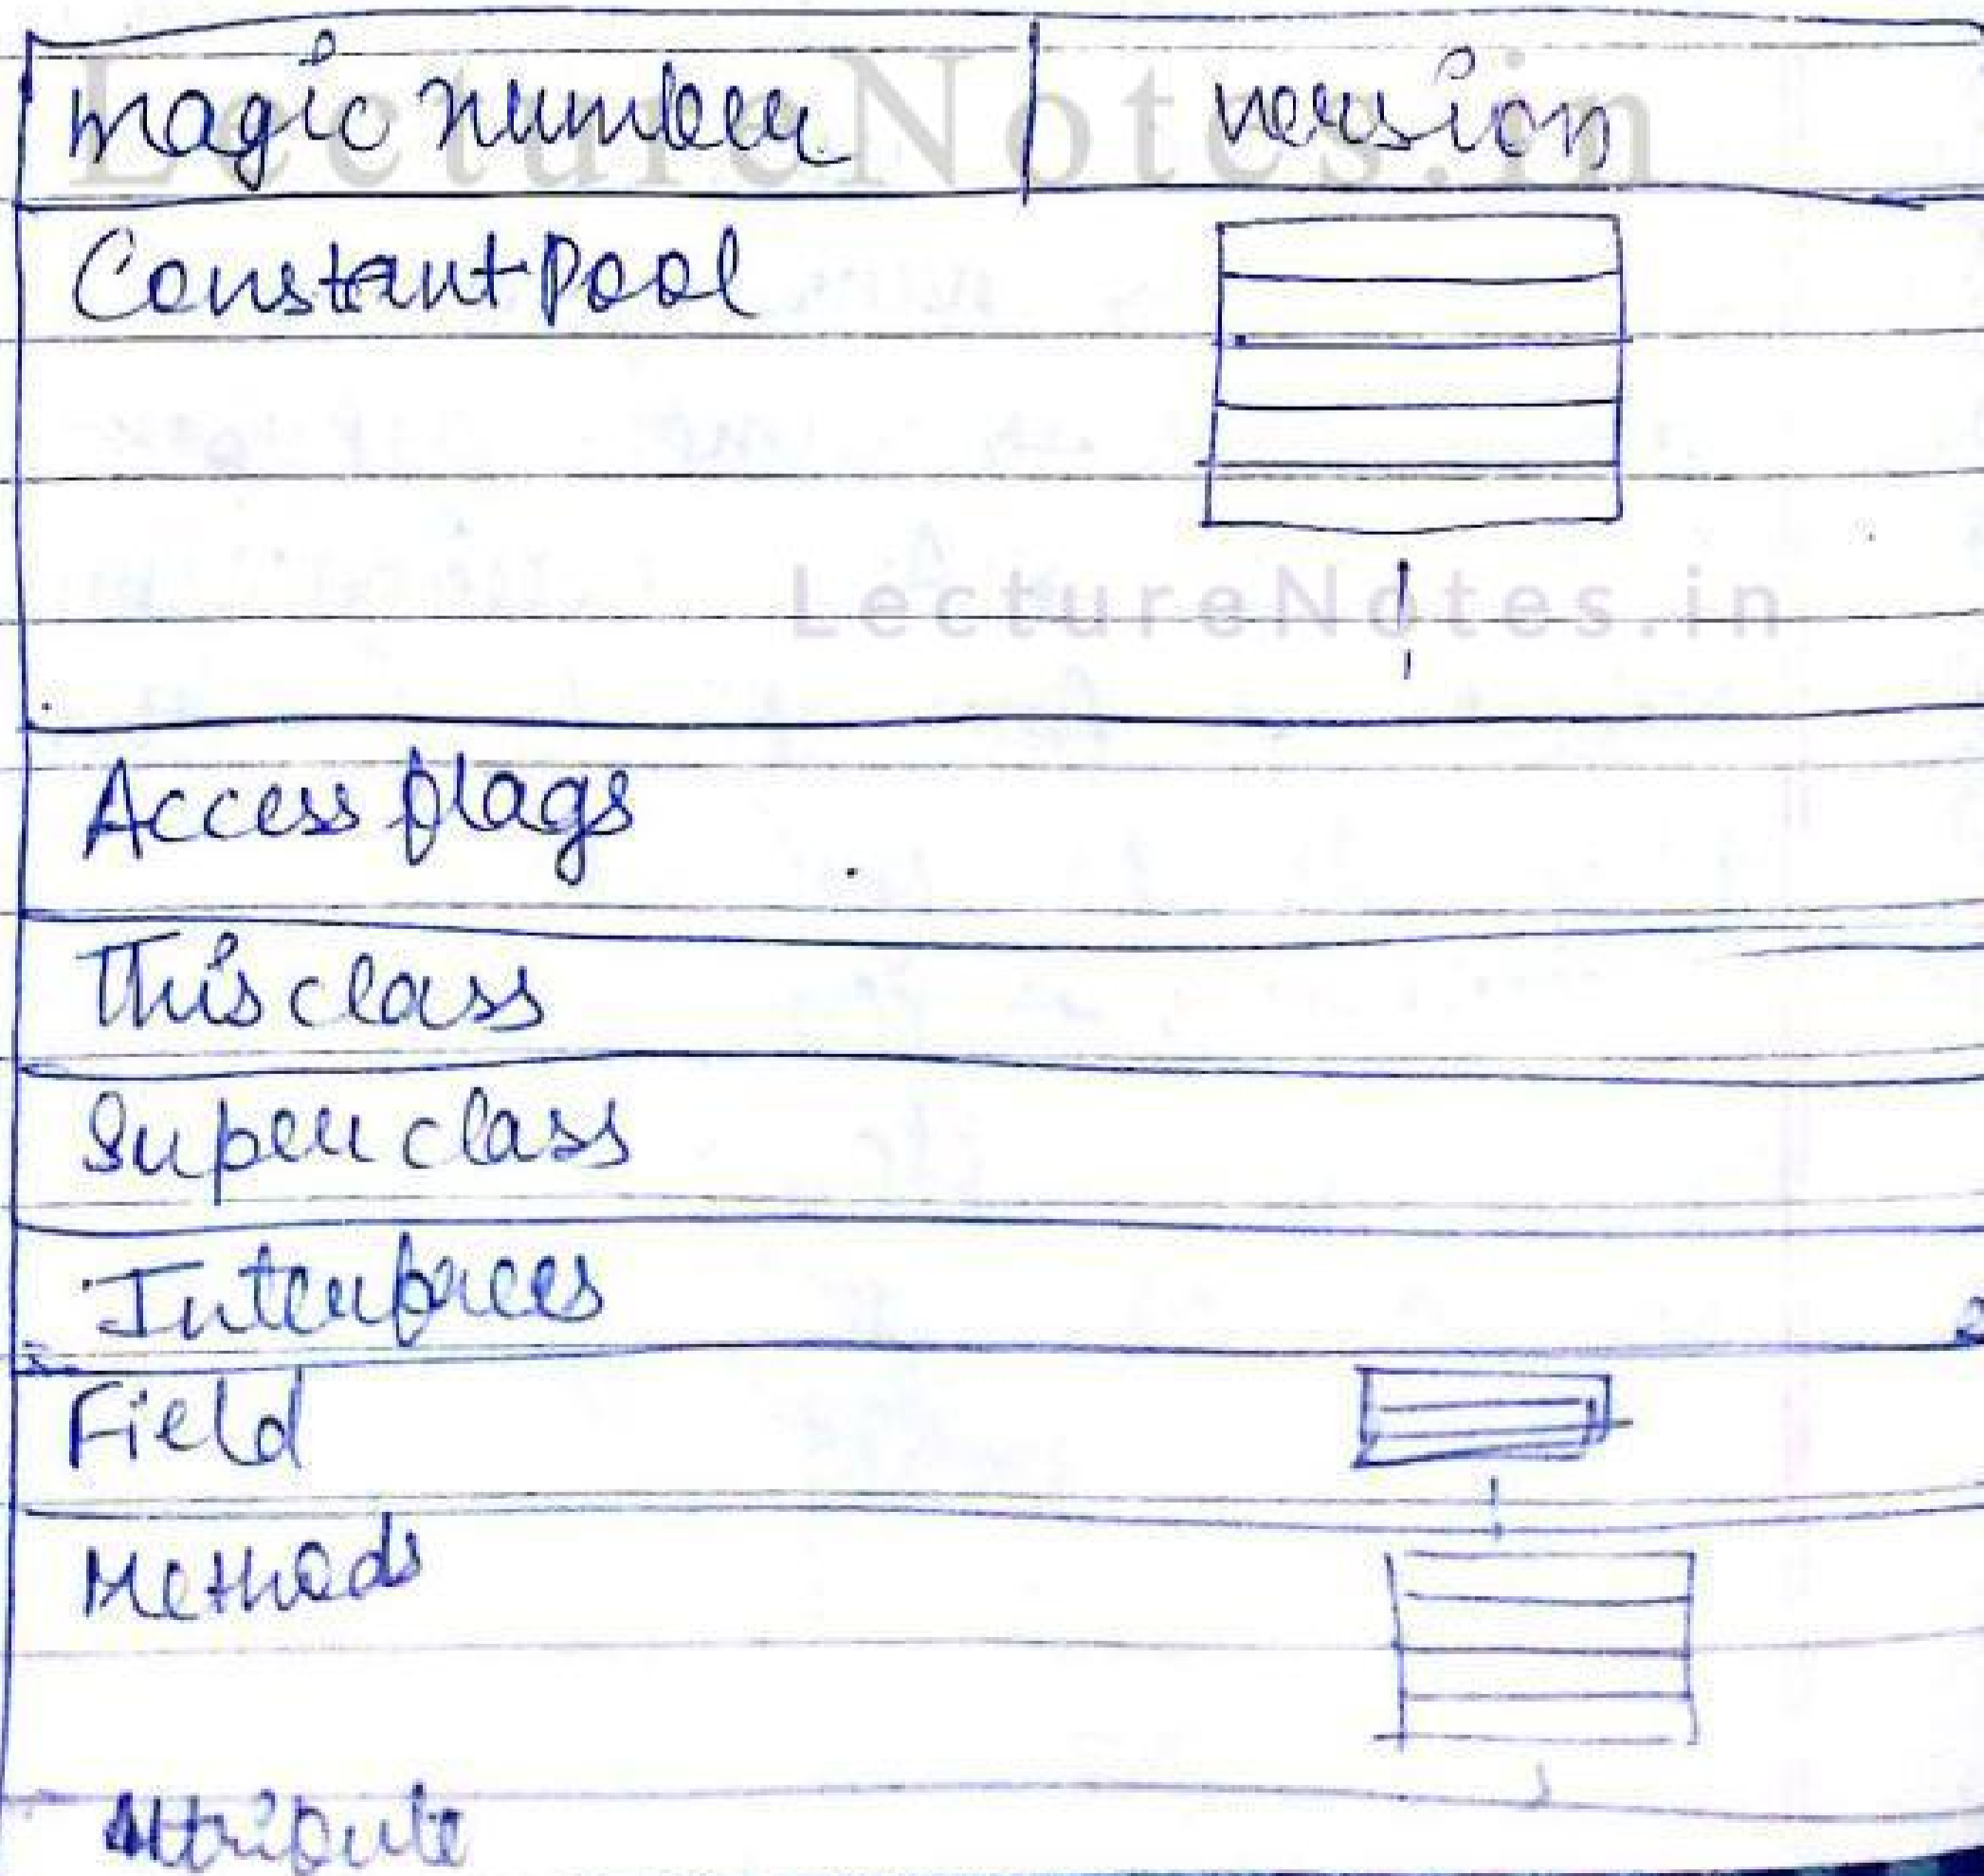 LectureNotes.in
magic number version
Constant Pool
LectureNotes.in
Access flags
This class
Super class
Interfaces
Field
Methods
Attribute